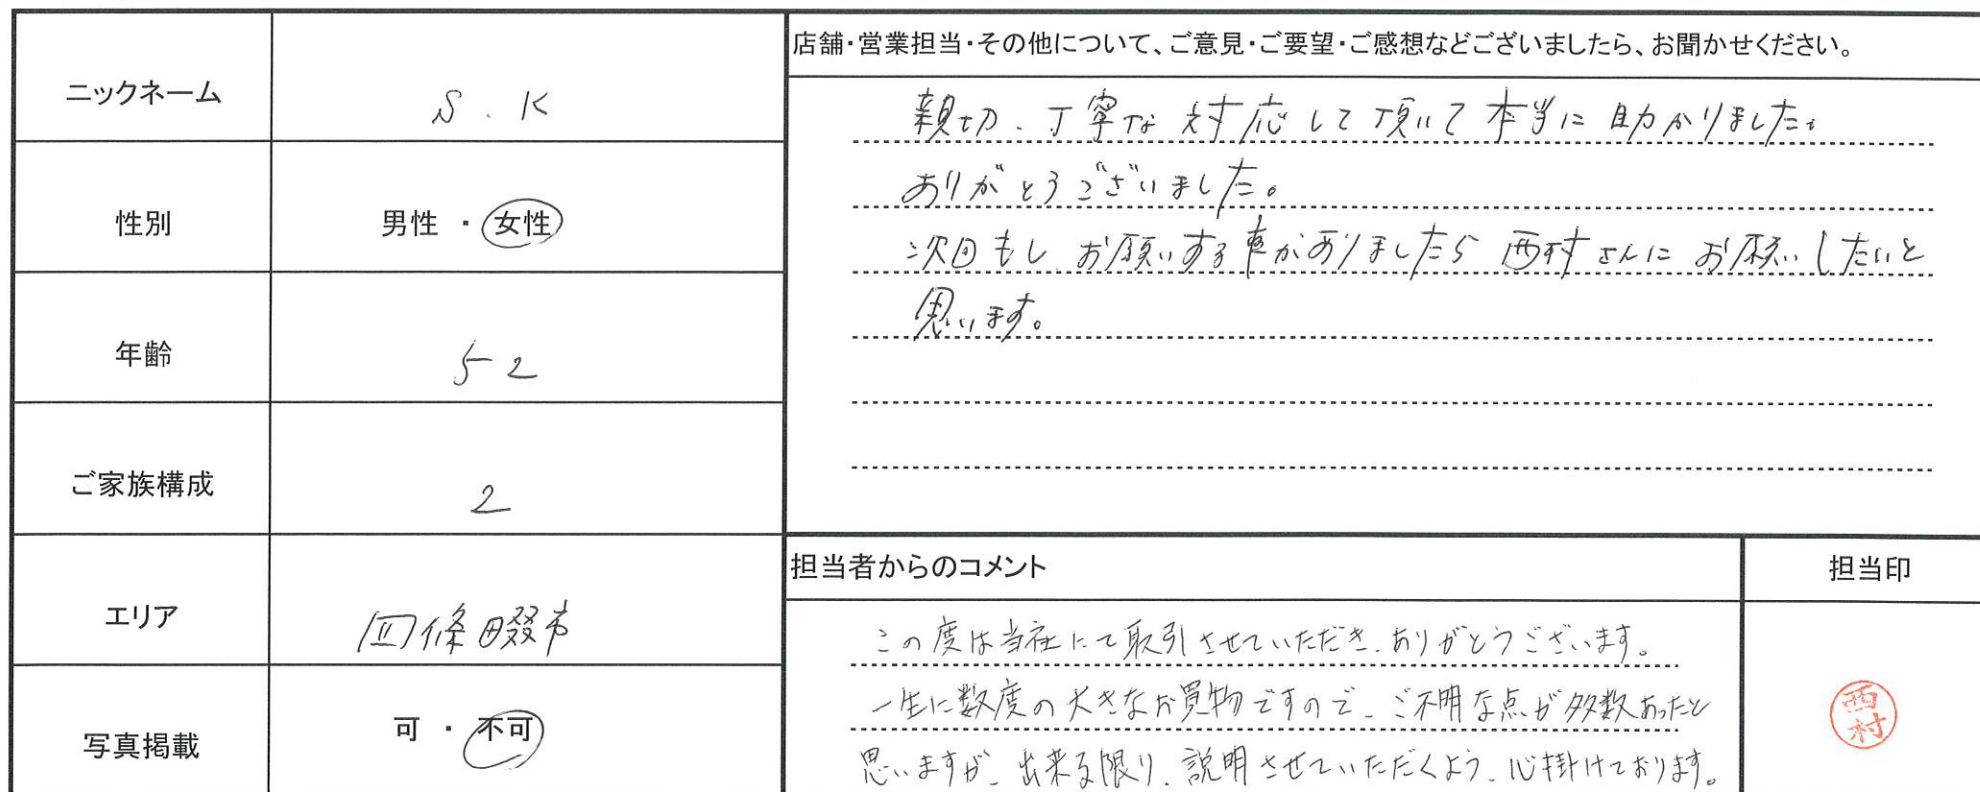 ニックネーム
S.K
性別
男性 ・ 女性
年齢
52
ご家族構成
2
エリア
四條畷市
写真掲載
可 ・ 不可
店舗・営業担当・その他について、ご意見・ご要望・ご感想などございましたら、お聞かせください。
親切、丁寧な対応して頂いて本当に助かりました。
ありがとうございました。
次回もし、お願いする事がありましたら西村さんにお願いしたいと
思います。
担当者からのコメント
この度は当社にて取引させていただき、ありがとうございます。
一生に数度の大きなお買物ですので、ご不明な点が多数あったと
思いますが、出来る限り、説明させていただくよう、心掛けております。
担当印
西村